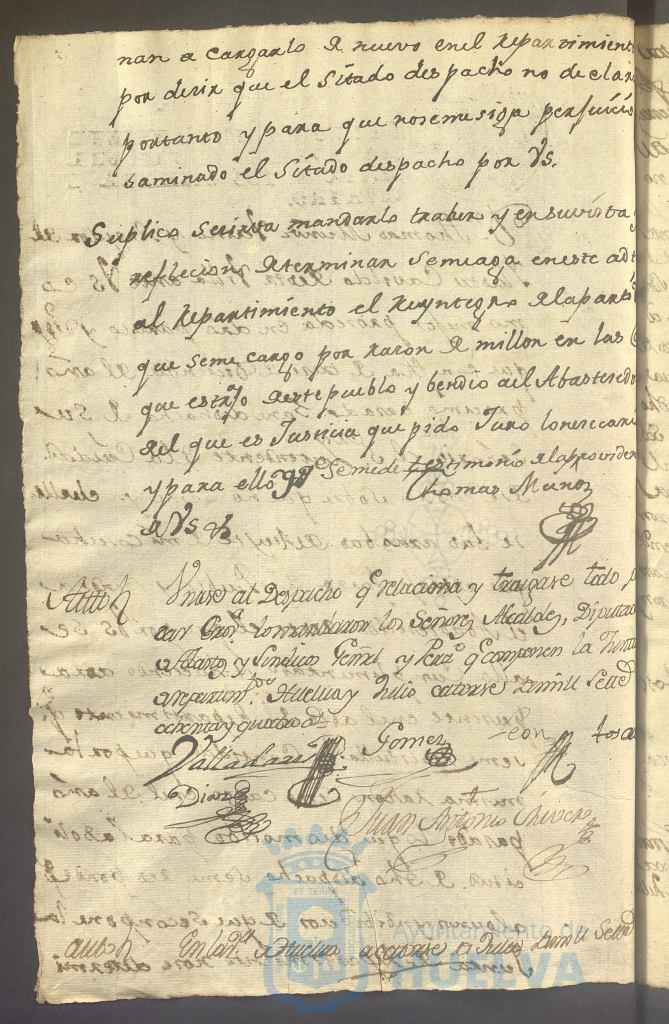 nan a cargarlo de nuevo en el repartimient
por desir que el Sitado despacho no declar
portanto y para que nosemesiga perjuicio
taminado el Sitado despacho por Vs.
Suplico se sirva mandarlo traher y en su vista
reflecion determinar se me aga en este
al repartimiento el Reyntegro de la
que seme cargo por razon de millon en las
que estrajo deste pueblo y bendio del Abastesedo
del que es Justicia que pido Juro lo necesari
y para ello seme de testimonio de la providen
a Vs &
Thomas Muñoz
Autto
Vnase al Despacho q relaciona y traigase todo
lo mandaron los Señores Alcaldes, Diputad
Abasto, y Sindico Genel y Perso q componen la Junta
Huelva y Julio catorse de mill Setted
ochenta y quatro a
Valladares
Gomez
Leon
Diaz
Juan Antonio Rivero
auto
En la Huelva a catorse de Julio de mill Setted
Ayuntamiento de
HUELVA